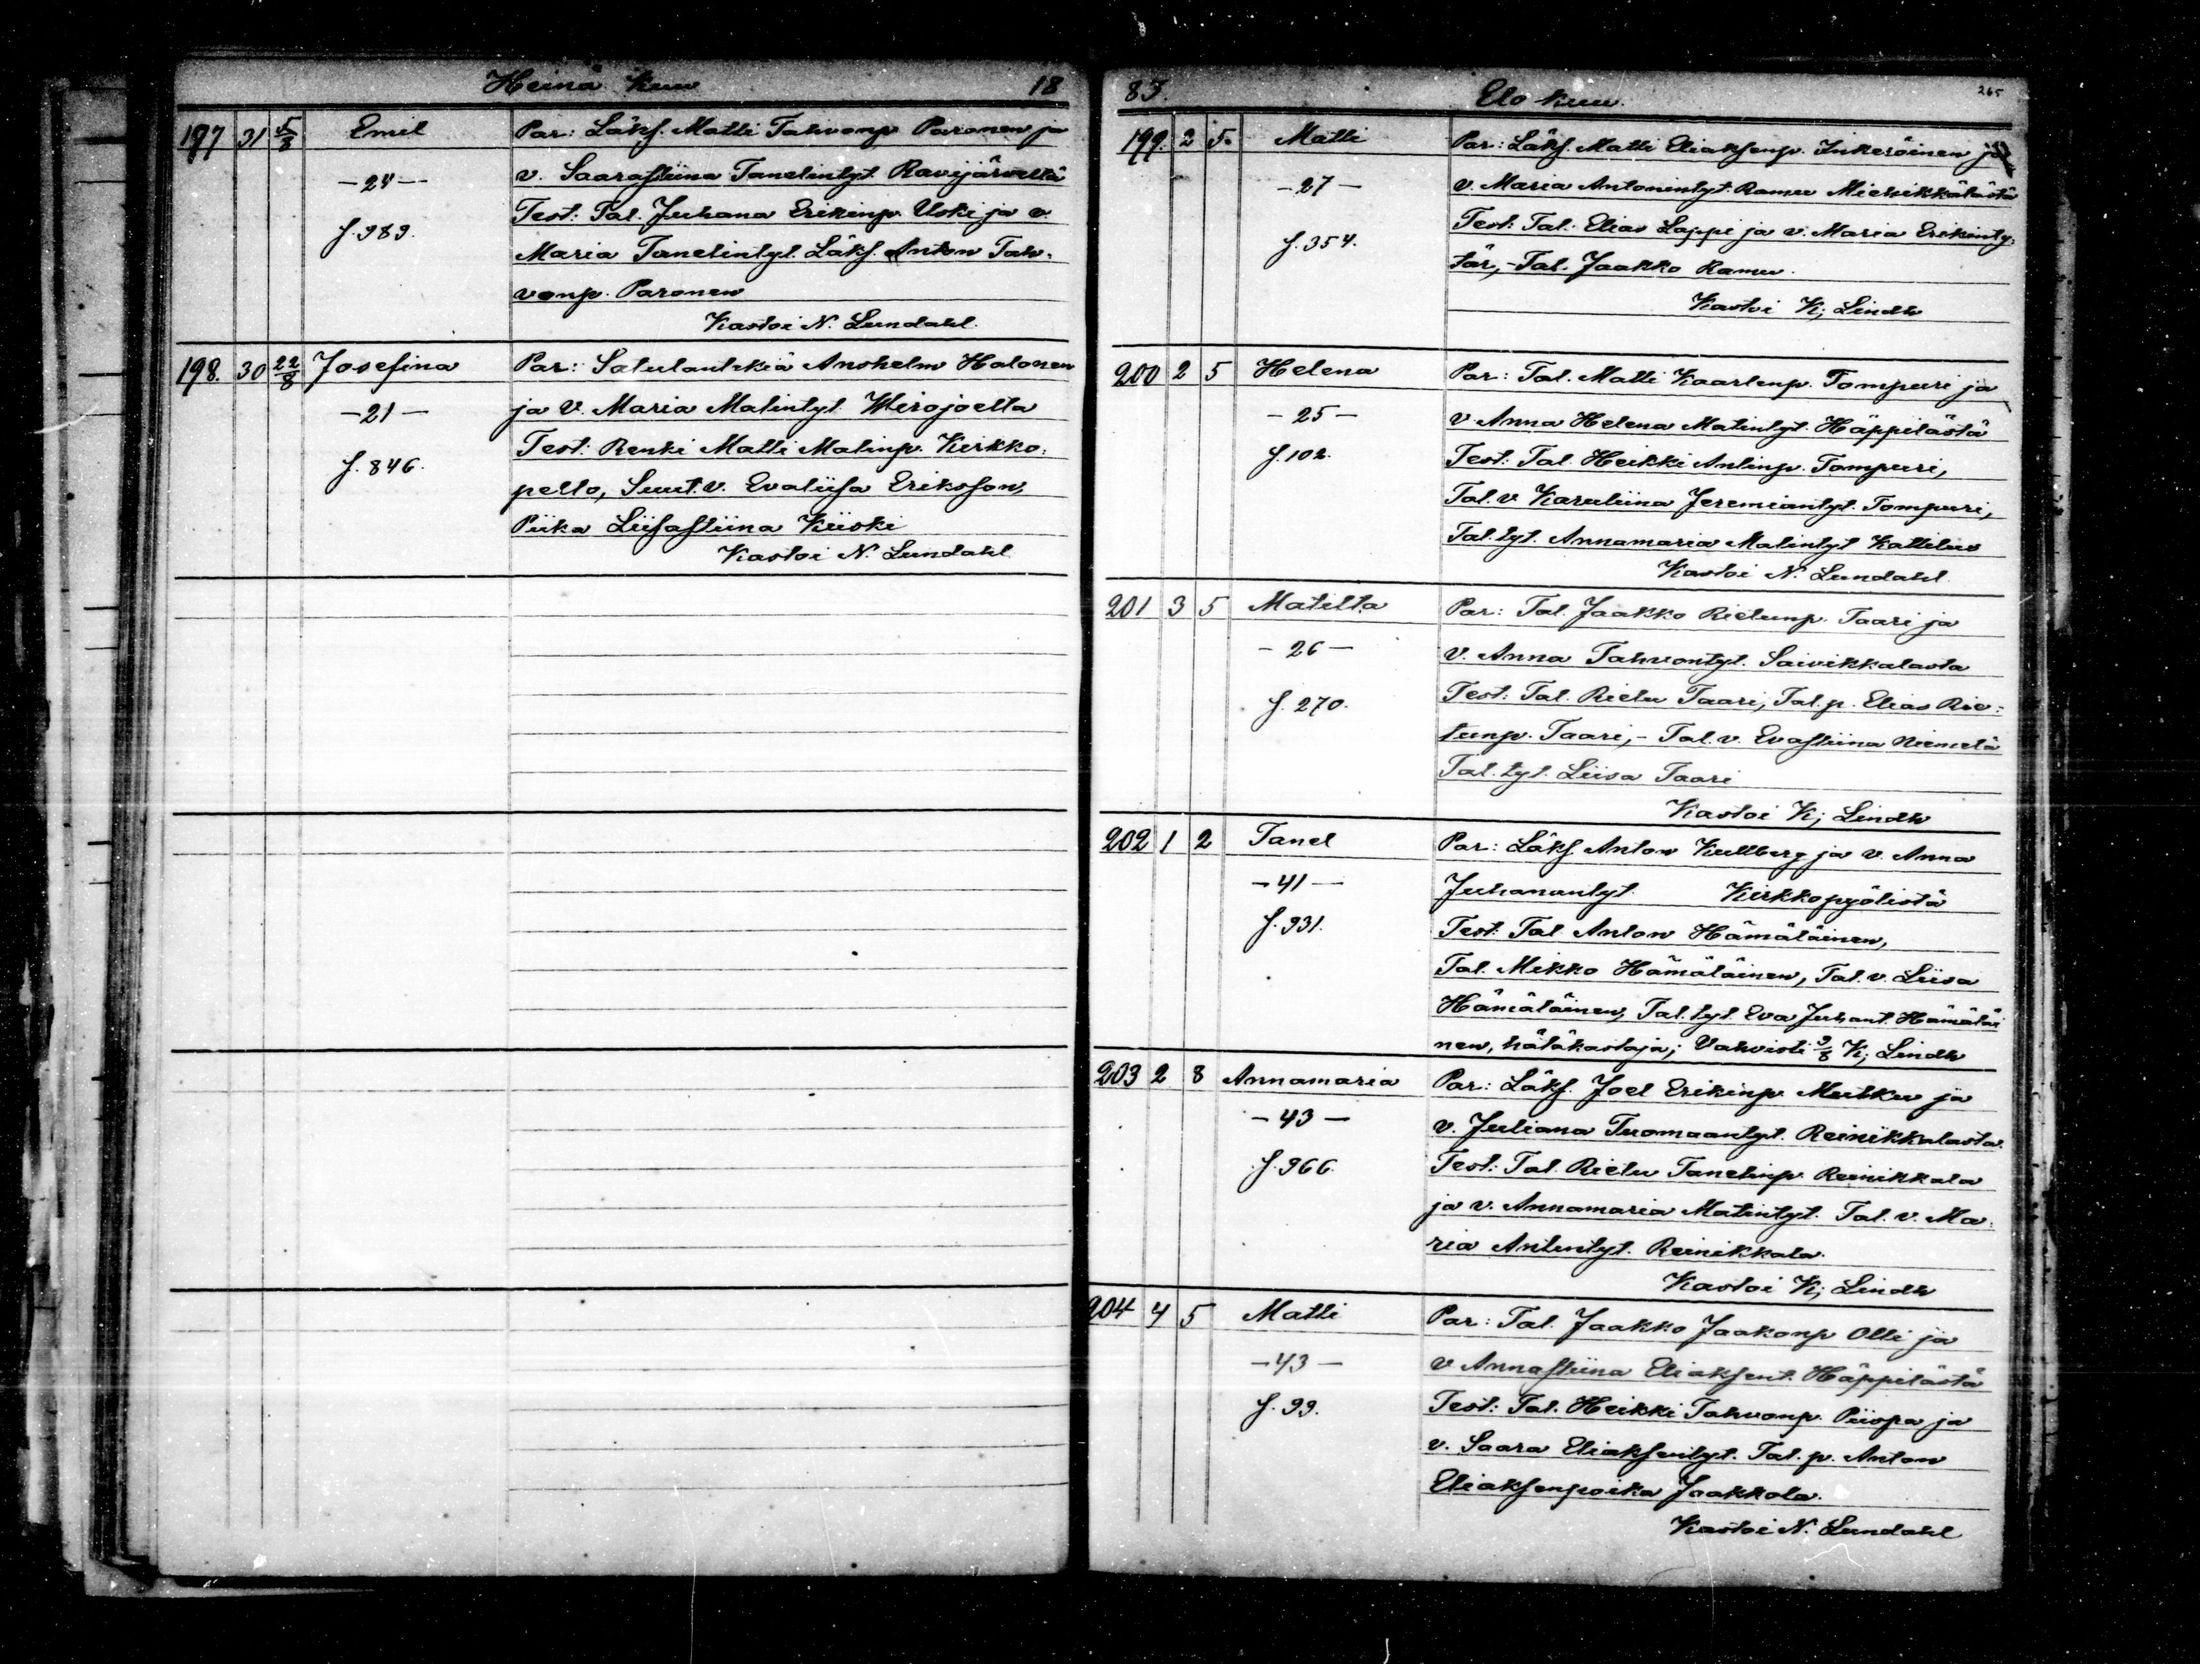 Heinä kuu 18
197 31 5/8 Emil Par: Läksˢ. Matti Tahvonp Paronen ja
— 24 — v. Saarastiina Tanelintyt. Ravijärveltä
f. 989. Test: Tal. Juhana Erikinp. Uski ja v.
Maria Tanelintyt. Läks. Anton Tah-
vonp. Paronen
Kastoi N. Lundahl.
198. 30 22/8 Josefina Par: Satulantekiä Anshelm Halonen
— 21 — ja v. Maria Matintyt. Wirojoelta
f. 846. Test: Renki Matti Matinp. Kirkko-
pelto, Suut. v. Evaliisa Eriksson,
Piika Liisastiina Kiiski
Kastoi N. Lundahl.
83. Elo kuu. 265
199. 2 5. Matti Par: Läks. Matti Eliaksenp. Inkeröinen ja
— 27 — v. Maria Antonintyt. Ramu Miehikkälästä
f. 354. Test: Tal. Elias Lappi ja v. Maria Erikinty-
tär, – Tal. Jaakko Ramu.
Kastoi K; Lindh
200 2 5 Helena Par: Tal. Matti Kaarlenp. Tompuri ja
— 25 — v Anna Helena Matintyt. Häppilästä
f. 102. Test: Tal. Heikki Antinp. Tompuri,
Tal. v Karuliina Jeremiantyt. Tompuri,
Tal. tyt. Annamaria Matintyt Kattilus
Kastoi N. Lundahl.
201 3 5 Matilta Par: Tal. Jaakko Rietunp. Taari ja
— 26 — v. Anna Tahvontyt. Saivikkalasta
f. 270. Test: Tal. Rietu Taari, Tal. p. Elias Rie-
tunp. Taari, – Tal. v. Evastiina Niemelä
Tal. tyt. Liisa Taari
Kastoi K; Lindh
202 1 2 Tanel Par: Läks. Anton Kullberg ja v. Anna
— 41 — Juhanantyt. Kirkkopyölistä
f. 931. Test: Tal Anton Hämäläinen,
Tal. Mikko Hämäläinen, Tal. v. Liisa
Hämäläinen, Tal. tyt. Eva Juhant. Hämäläi
nen, hätäkastaja; Vahvisti 9/8 K; Lindh
203 2 8 Annamaria Par: Läks. Joel Erikinp. Muikku ja
— 43 — v. Juliana Tuomaantyt. Reinikkalasta
f. 966. Test: Tal. Rietu Tanelinp. Reinikkala
ja v. Annamaria Matintyt. Tal. v. Ma-
ria Antintyt. Reinikkala.
Kastoi K; Lindh
204 4 5 Matti Par: Tal. Jaakko Jaakonp Olli ja
— 43 — v Annastiina Eliaksent. Häppilästä
f. 99. Test: Tal. Heikki Tahvonp. Piispa ja
v. Saara Eliaksentyt. Tal. p. Anton
Eliaksenpoika Jaakkola.
Kastoi N. Lundahl